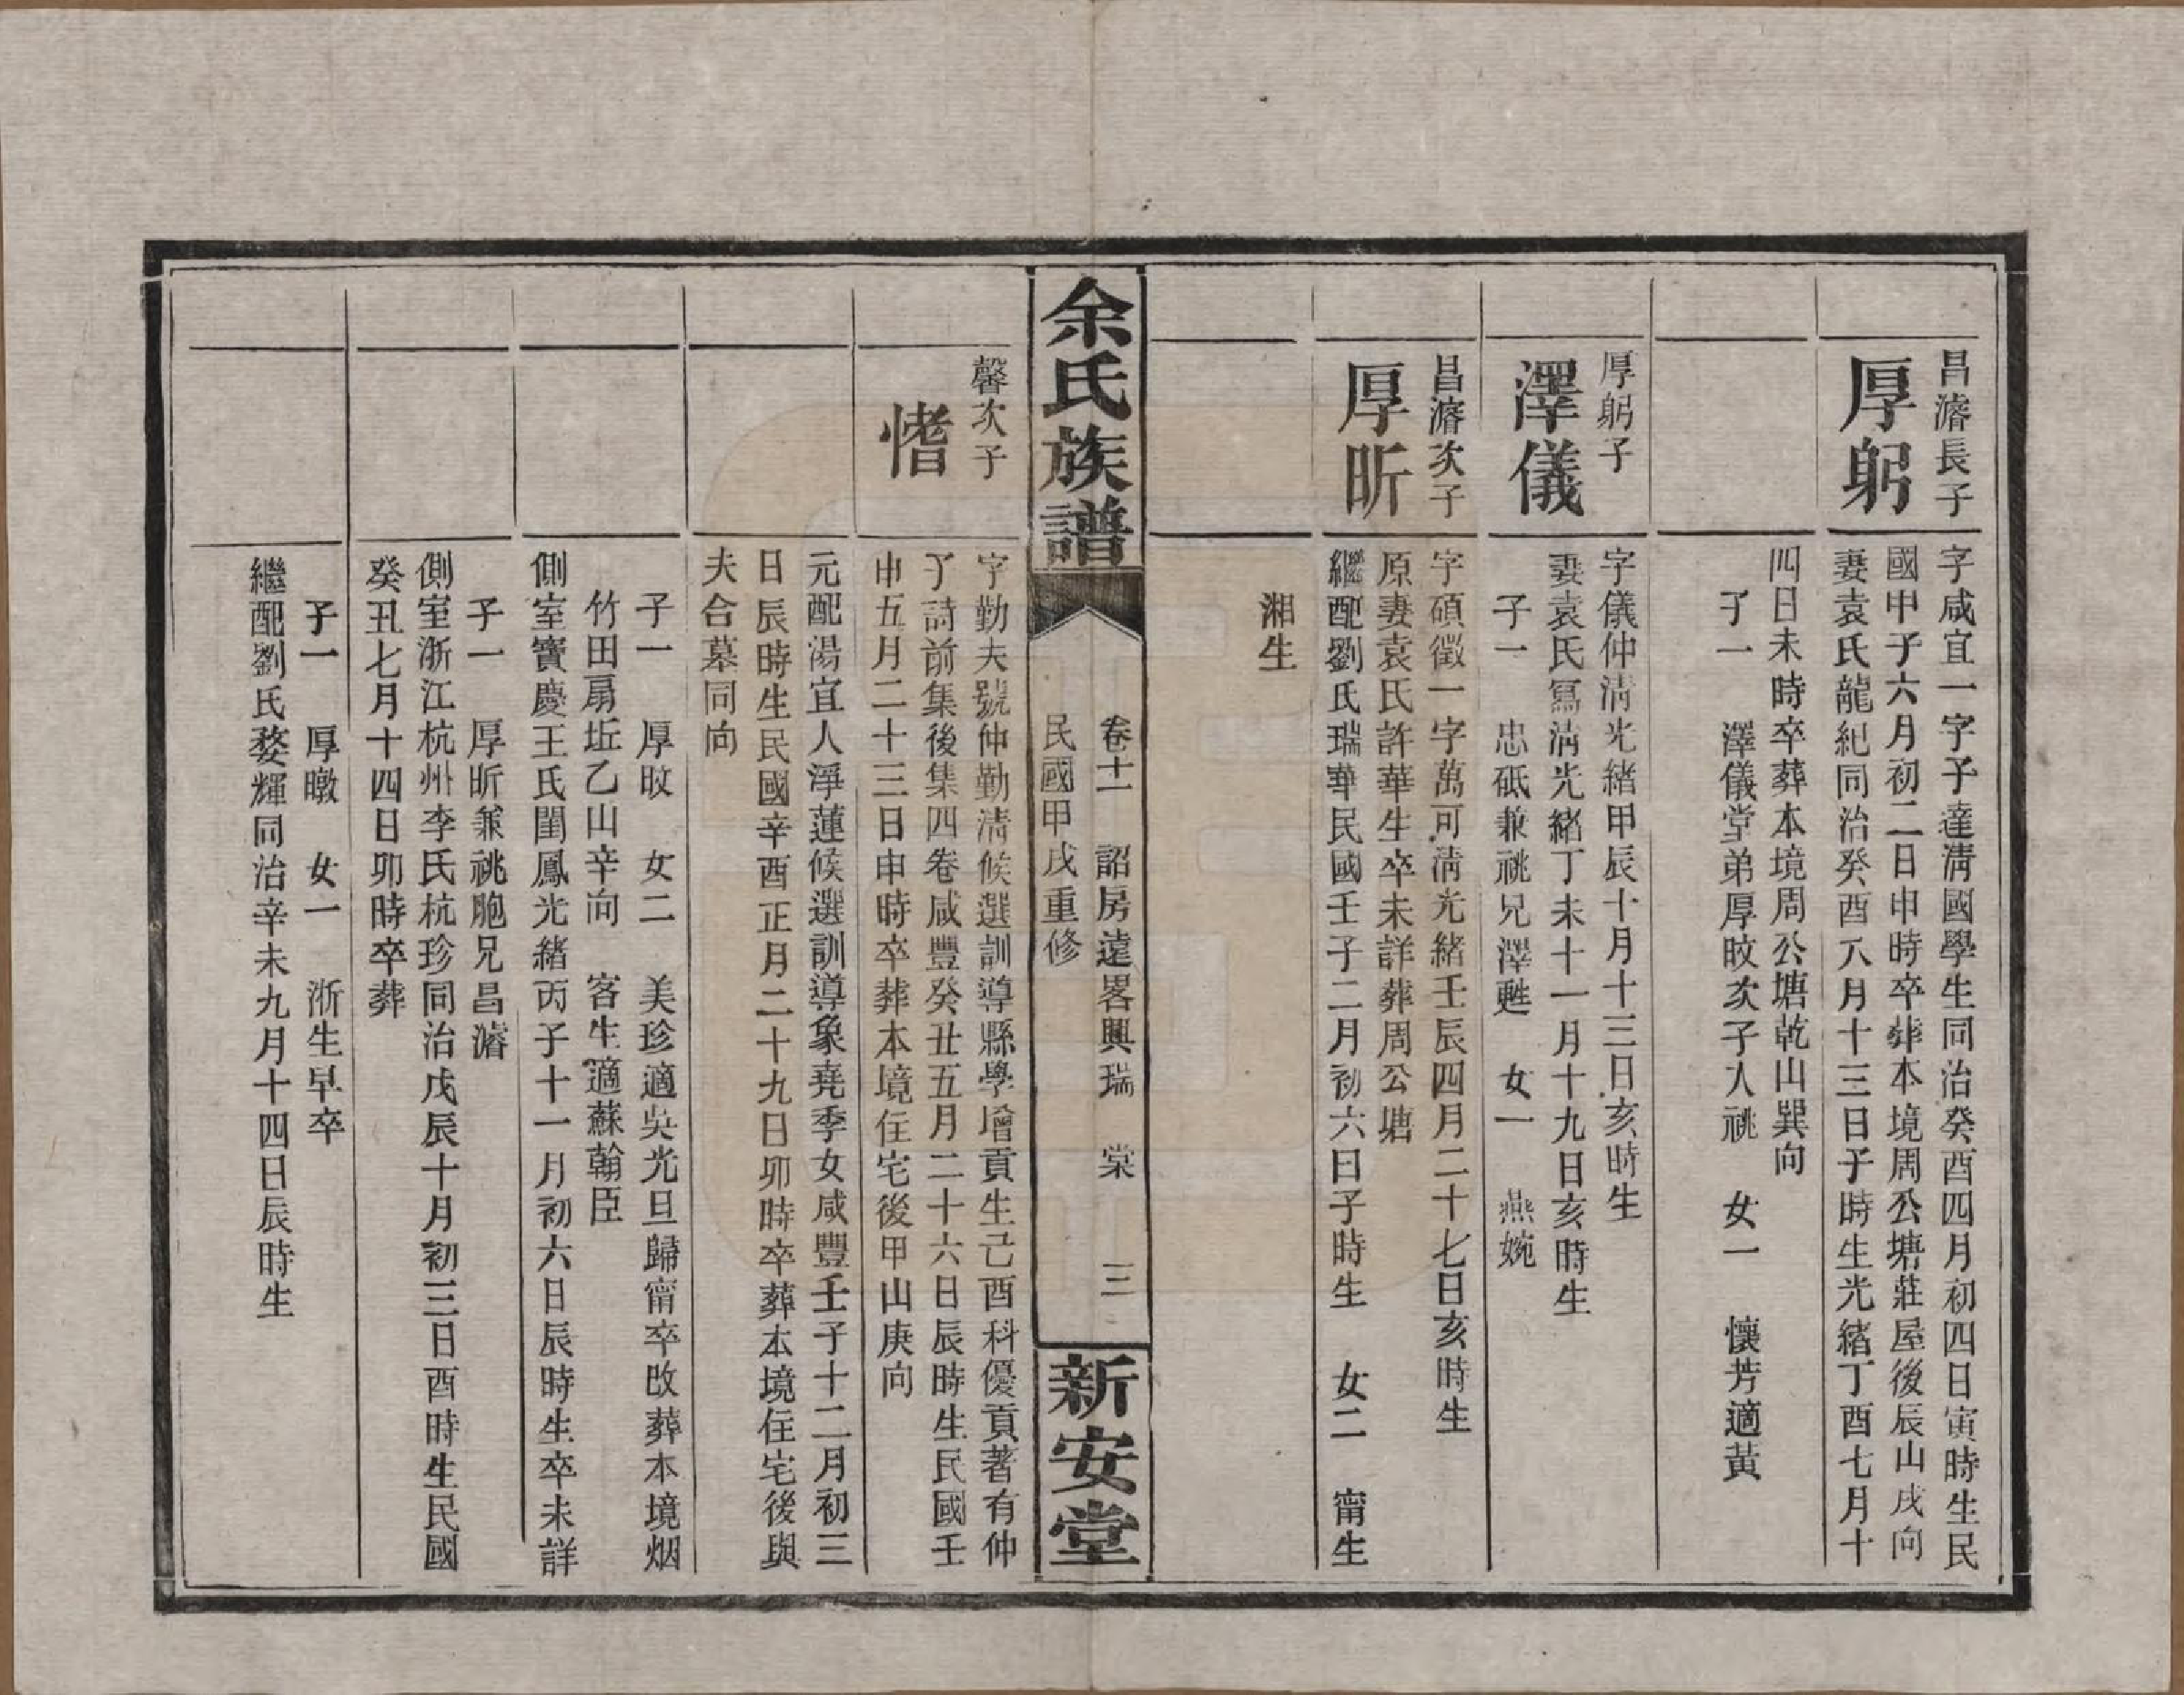 昌濬長子
厚躬
字咸宜一字予達淸國學生同治癸酉四月初四日寅時生民
國甲子六月初二日申時卒葬本境周公塘莊屋後辰山戌向
妻袁氏龍紀同治癸酉八月十三日子時生光緖丁酉七月十
四日未時卒葬本境周公塘乾山巽向
子一　澤儀堂弟厚旼次子入祧　女一　懷芳適黃
厚躬子
澤儀
字儀仲淸光緖甲辰十月十三日亥時生
妻袁氏寫淸光緖丁未十一月十九日亥時生
子一　忠砥兼祧兄澤甦　女一　燕婉
昌濬次子
厚昕
字碩徵一字萬可淸光緖壬辰四月二十七日亥時生
原妻袁氏許華生卒未詳葬周公塘
繼配劉氏瑞華民國壬子二月初六日子時生　女二　甯生
湘生
余氏族譜
卷十一　詔房遠畧興瑞　棠　三
民國甲戌重修
新安堂
馨次子
愭
字勤夫號仲勤淸候選訓導縣學增貢生己酉科優貢著有仲
子詩前集後集四卷咸豐癸丑五月二十六日辰時生民國壬
申五月二十三日申時卒葬本境住宅後甲山庚向
元配湯宜人淨蓮候選訓導象堯季女咸豐壬子十二月初三
日辰時生民國辛酉正月二十九日卯時卒葬本境住宅後與
夫合墓同向
子一　厚旼　女二　美珍適吳光旦歸甯卒改葬本境烟
竹田扇坵乙山辛向　客生適蘇翰臣
側室寶慶王氏閨鳳光緖丙子十一月初六日辰時生卒未詳
子一　厚昕兼祧胞兄昌濬
側室浙江杭州李氏杭珍同治戊辰十月初三日酉時生民國
癸丑七月十四日卯時卒葬
子一　厚暾　女一　浙生早卒
繼配劉氏婺輝同治辛未九月十四日辰時生